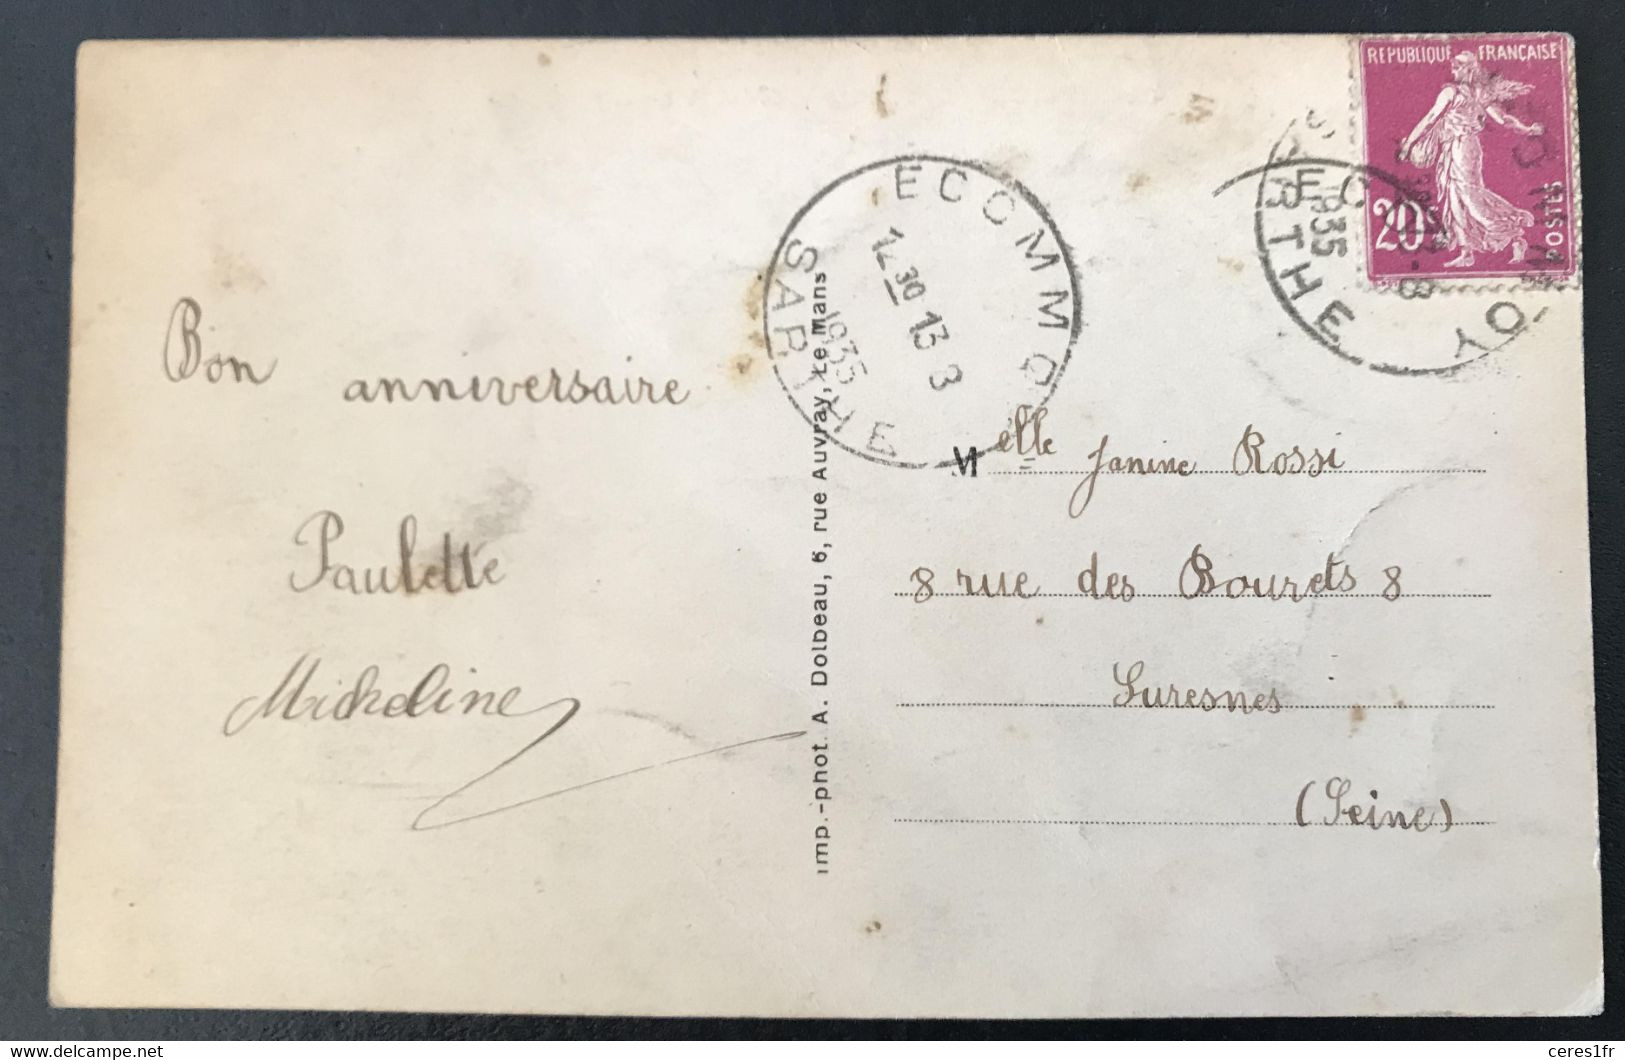 REPUBLIQUE FRANÇAISE
20c
POSTES
SARTHE
1935
ECOMMOY
ECOMMO
12 30 13-8
1935
SARTHE
Bon anniversaire
Paulette
Micheline
imp.-phot. A. Dolbeau, 6, rue Auvray, Le Mans
Melle Janine Rossi
8 rue des Bourets 8
Suresnes
(Seine)
www.delcampe.net
ceres1fr